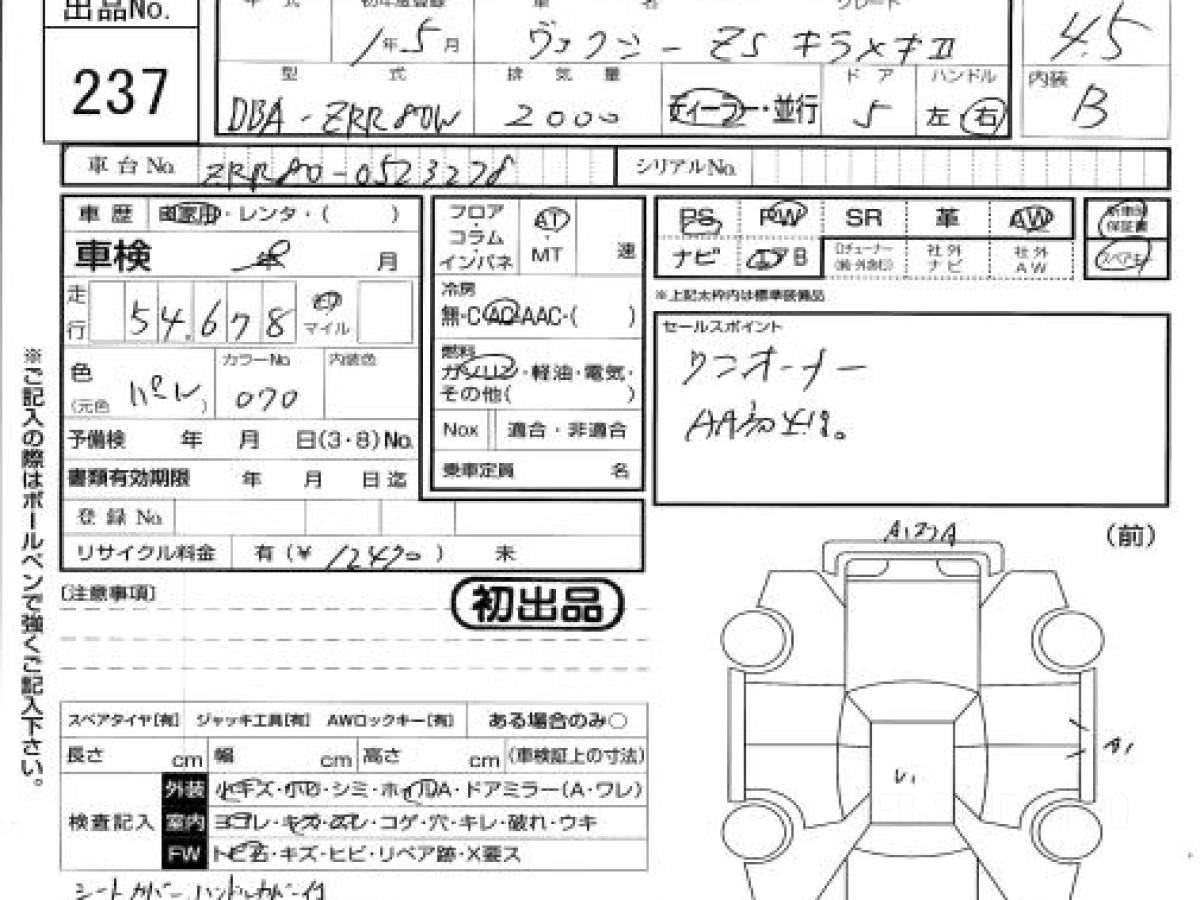 出品No.
237
年 式 初年度登録 車 名 グレード
1年 5月 ヴォクシー ZS キラメキⅡ 4.5
型 式 排 気 量 ドア ハンドル 内装
DBA-ZRR80W 2000 ディーラー・並行 5 左・右 B
車台No. ZRR80-0523278 シリアルNo.
車歴 自家用・レンタ・( )
車検 年 月
走行 54,678 マイル
色 (元色 パール) カラーNo 070 内装色
予備検 年 月 日(3・8)No.
書類有効期限 年 月 日迄
登録No.
リサイクル料金 有(¥ 12490) 未
フロア・コラム・インパネ AT・MT 速
冷房
無・C・AC・AAC・( )
燃料
ガソリン・軽油・電気・
その他( )
Nox 適合・非適合
乗車定員 名
PS PW SR 革 AW 新車時保証書
ナビ エアB Dチューナー(純・外含む) 社外ナビ 社外AW スペアキー
※上記太枠内は標準装備品
セールスポイント
ワンオーナー
AA初出品。
※ご記入の際はボールペンで強くご記入下さい。
〔注意事項〕
初出品
スペアタイヤ[有] ジャッキ工具[有] AWロックキー[有] ある場合のみ○
長さ cm 幅 cm 高さ cm (車検証上の寸法)
検査記入
外装 小キズ・小凹・シミ・ホイルA・ドアミラー(A・ワレ)
室内 ヨゴレ・キズ・スレ・コゲ・穴・キレ・破れ・ウキ
FW トビ石・キズ・ヒビ・リペア跡・X要ス
シートカバー、ハンドルカバー付
(前)
A1
U1